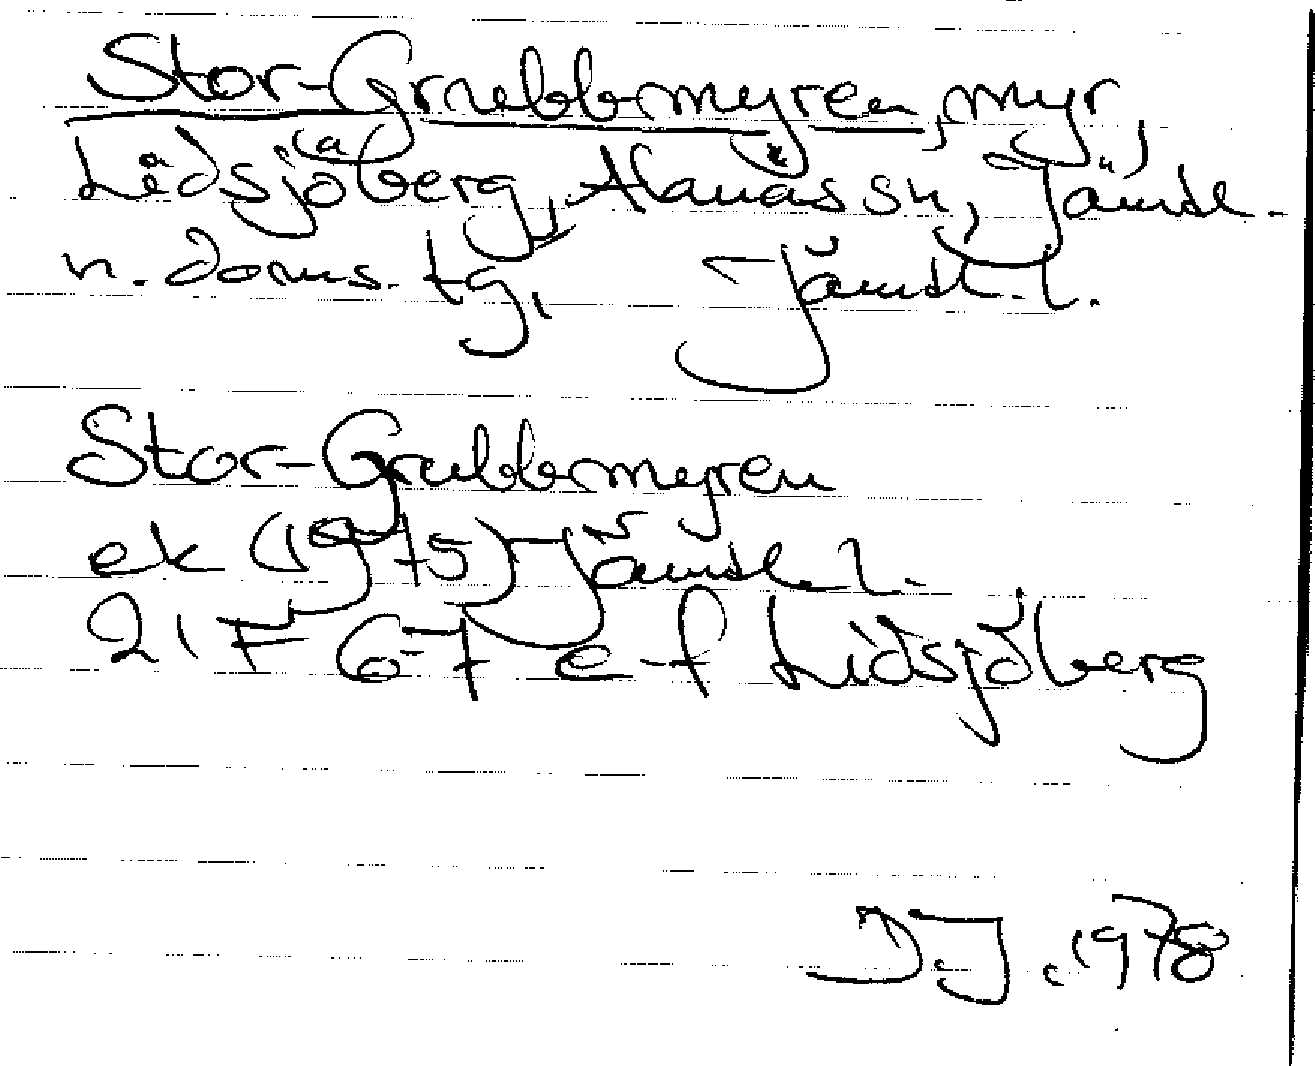 Stor-Grubbmyren, myr,
Lidsjöberg, Alanäs sn, Jämtl.
n. doms. tg, Jämtl. l.
Stor-Grubbmyren
ek (1975) Jämtl. l.
21 F 6-7 e-f Lidsjöberg
DJ. 1978